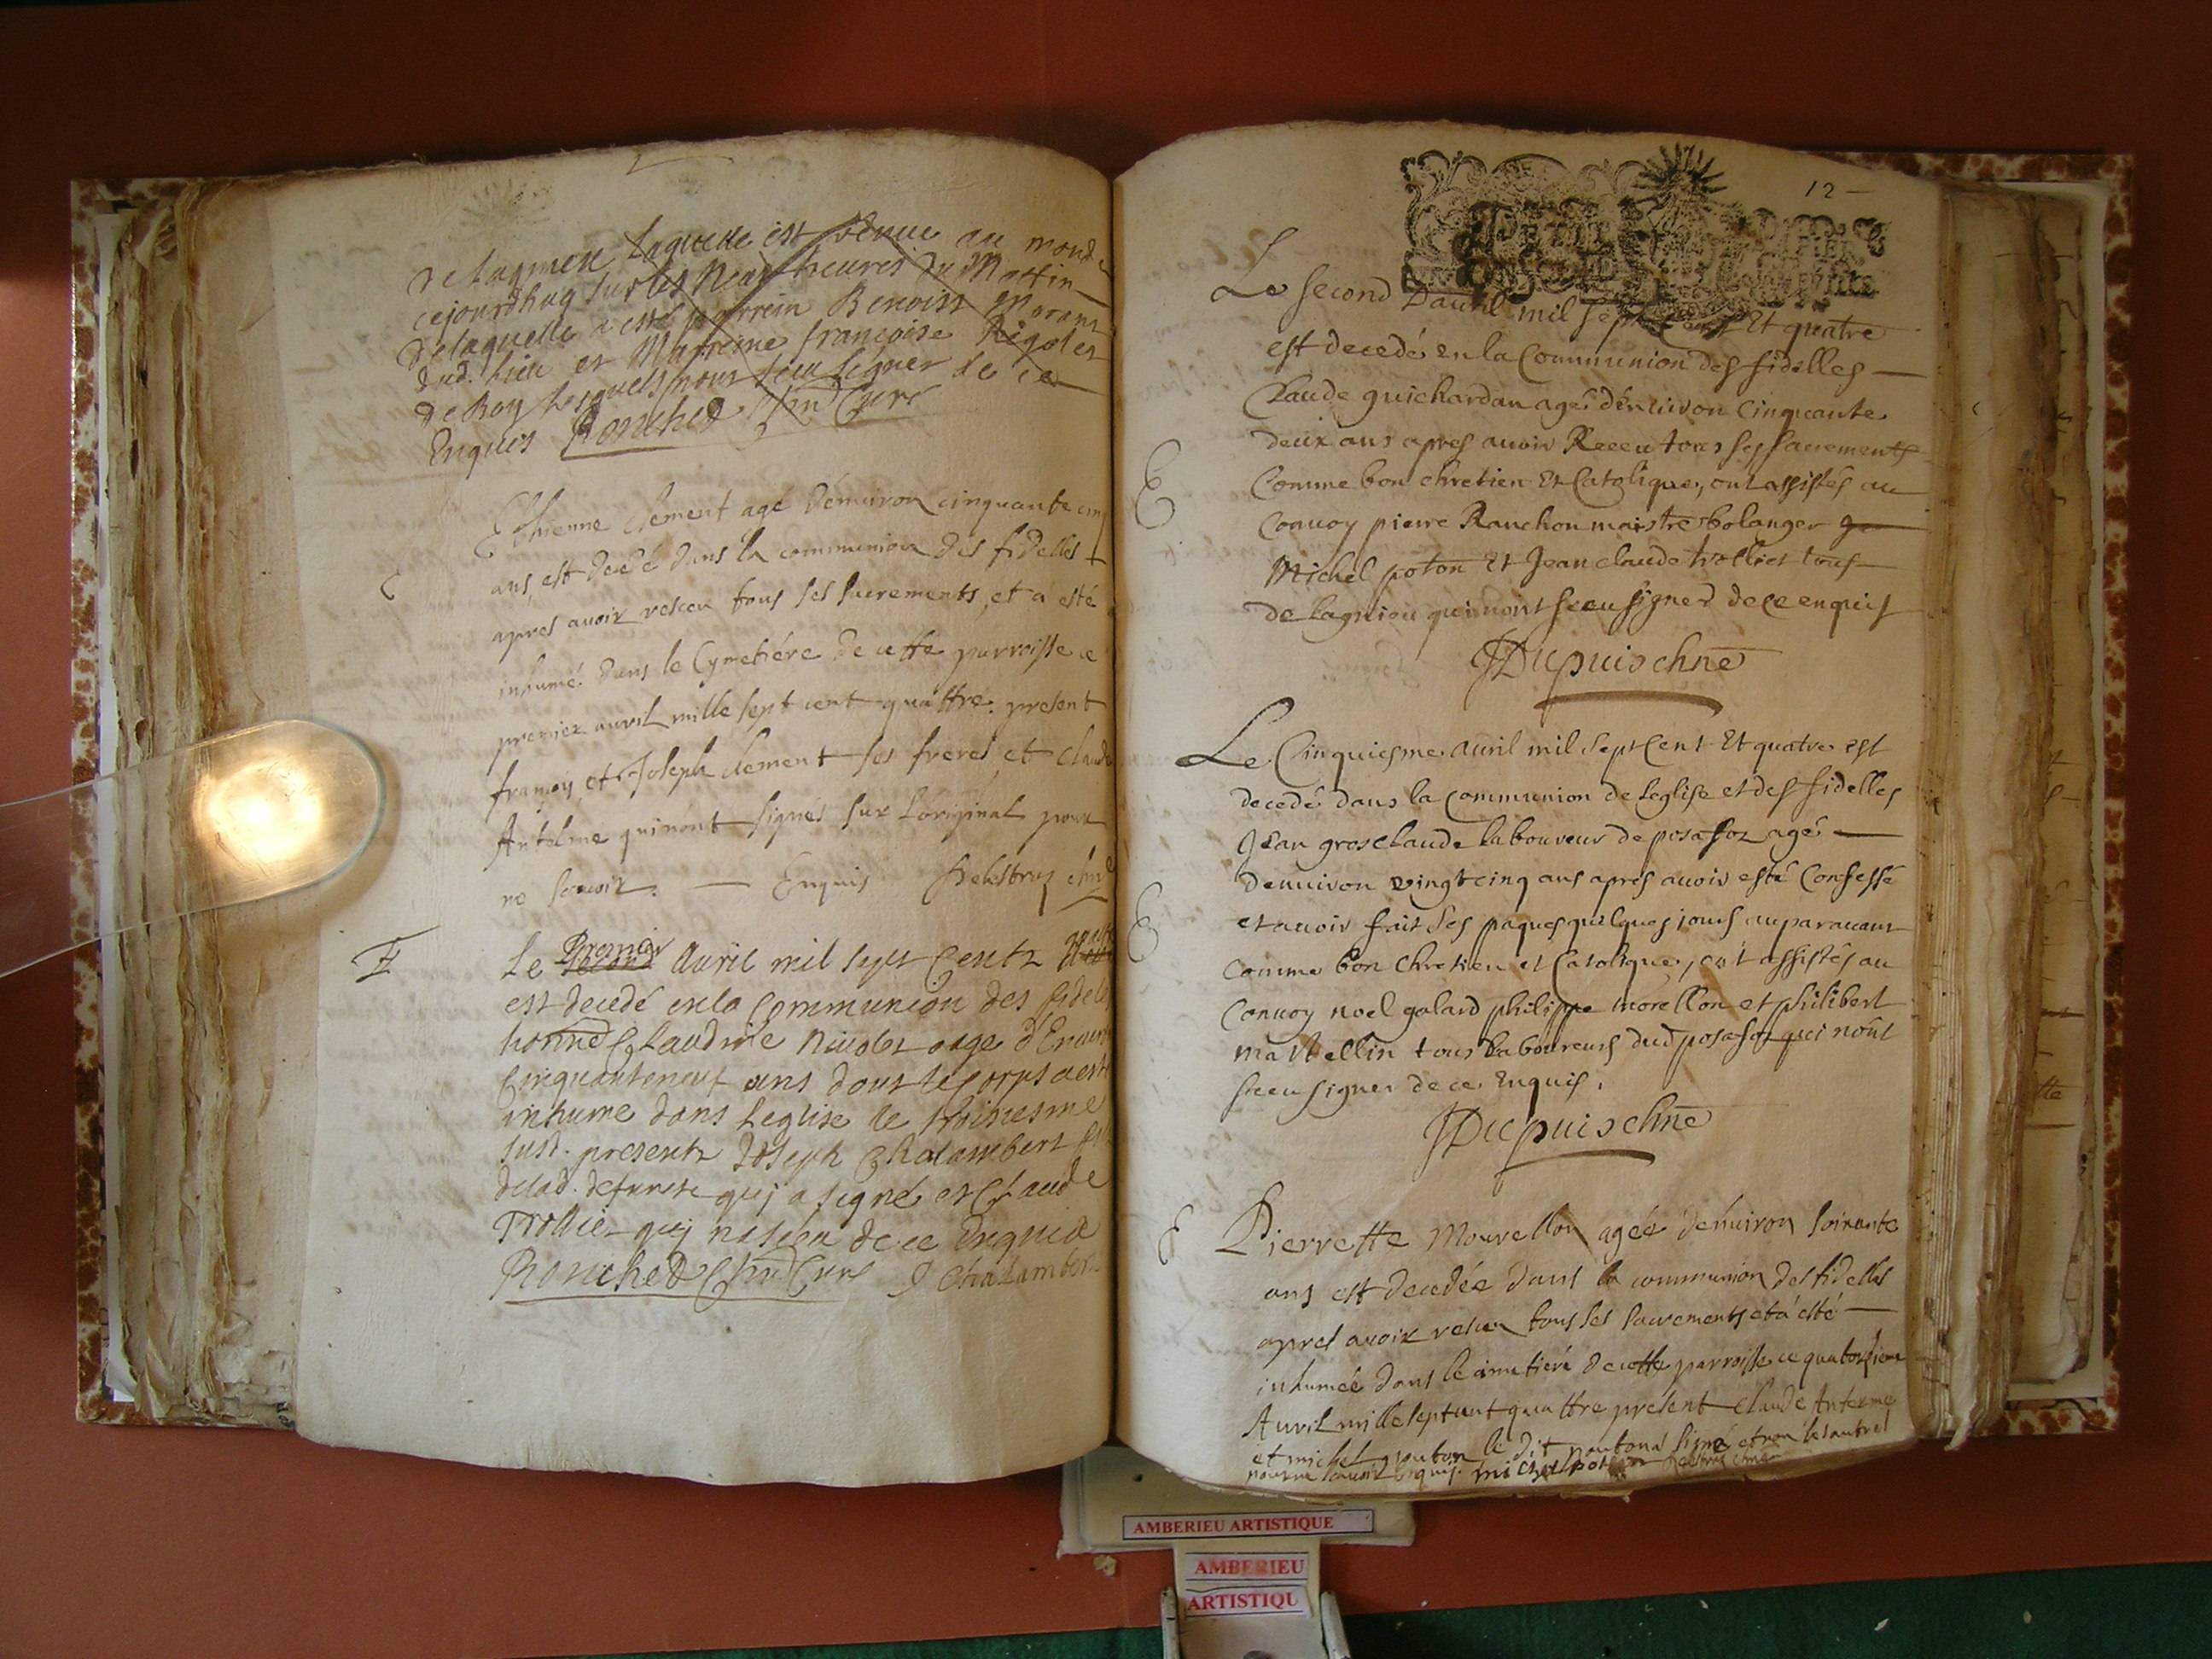 de lagnieu laquelle est venue au monde
cejourdhuy sur les neuf heures du Mattin
delaquelle a esté parrein Benoist Morant
dud. lieu et Marreine françoise Rigolet
de Roy lesquels nont sceu signer de ce
Enquis Ronched Chne Curé
Ethienne Clement agé d'enuiron cinquante cinq
ans est decedé dans la communion des fidelles
apres auoir receu tous ses sacrements, et a esté
inhumé dans le Cymetiére de cette parroisse ce
premier auril mille sept cent quattre. présent
françois et Joseph clement ses freres, et claude
Antelme qui n'ont signés sur L'original pour
ne scauoir. — Enquis
Le Premier Auril mil sept Cents quatre
est decedé en la Communion des fideles
honneste Claudine Niuolet aage d'Enuiron
Cinquanteneuf ans dont le corps a esté
inhume dans Leglise le troisiesme
susd. presents Joseph Chalambert fils
delad. defuncte quj a signé et Claude
Trollier quj na sceu de ce Enquis
Ronched Chne Curé J Chalambert
12 –
Le second Dauril mil sept Cent Et quatre
est decedé en la Communion des fidelles —
Claude guichardan agé d'enuiron Cinquante
deux ans apres auoir Receu tous ses sacrements
Comme bon chretien Et Catolique, ont assistés au
Conuoy pierre Ranchon maistre bolanger
Michel poton Et Jean claude trolliet tous
de lagnieu qui n'ont sceu signer de ce enquis
JDupuis chne
Le Cinquiesme auril mil sept Cent Et quatre est
decedé dans la Communion de Leglise et des fidelles
Jean grosclaude laboureur de posafol agé —
denuiron vingtcinq ans apres auoir esté Confessé
et auoir fait ses paques quelques jours auparauant
comme bon Chretien et Catolique, ont assistés au
Conuoy noel galard philippe morellon et philibert
Martellin tous laboureurs dud posafol qui nont
sceu signer de ce Enquis.
JDupuis chne
Pierrette Mourellon agée d'enuiron soixante
ans est decedée dans la communion des fidelles
apres auoir receu tous ses sacrements et a esté —
inhumée dans le cimetiére de cette parroisse ce quatorsieme
Auril mille sept cent quattre présent Claude Anterme
et michel pouton le dit pouton a signé et non les autres
pour ne scauoir enquis. michel poton
AMBERIEU ARTISTIQUE
AMBERIEU
ARTISTIQU